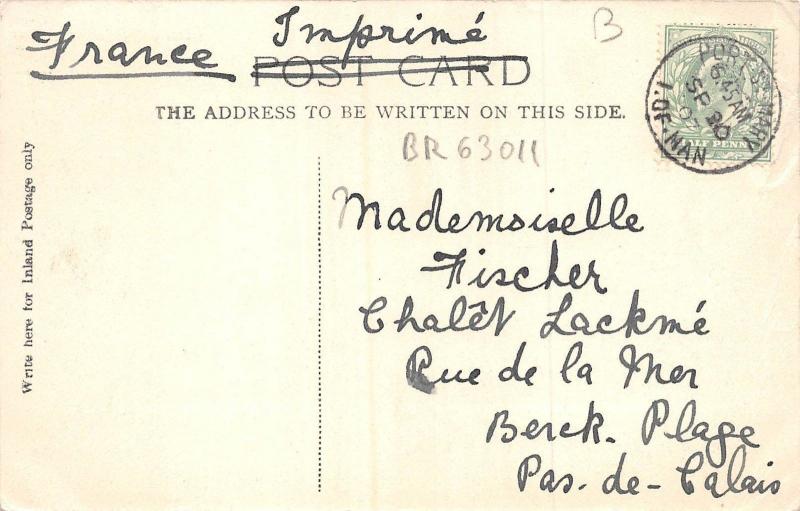 France
Imprimé
B
POST CARD
THE ADDRESS TO BE WRITTEN ON THIS SIDE.
BR63011
Write here for Inland Postage only
Mademoiselle
Fischer
Chalêt Lackmé
Rue de la Mer
Berck. Plage
Pas-de-Calais
PORT ST MARY
6.45 AM
SE 30
I. OF MAN
HALF PENNY